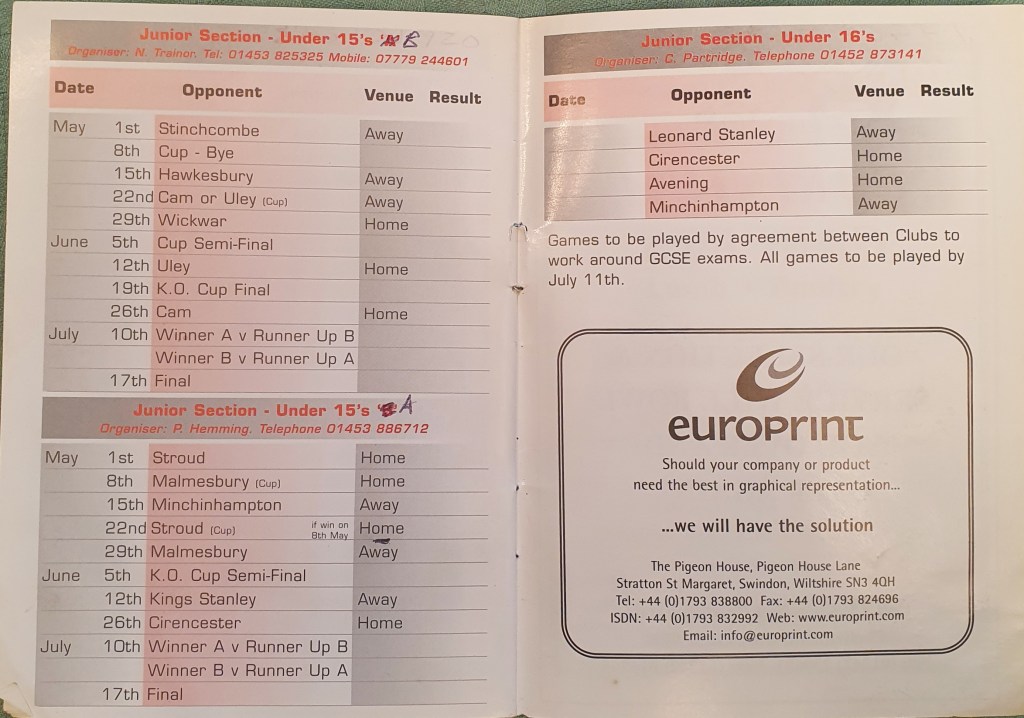 Junior Section - Under 15's B
Organiser: N. Trainor. Tel: 01453 825325 Mobile: 07779 244601
Date Opponent Venue Result
May 1st Stinchcombe Away
8th Cup - Bye
15th Hawkesbury Away
22nd Cam or Uley (Cup) Away
29th Wickwar Home
June 5th Cup Semi-Final
12th Uley Home
19th K.O. Cup Final
26th Cam Home
July 10th Winner A v Runner Up B
Winner B v Runner Up A
17th Final
Junior Section - Under 15's A
Organiser: P. Hemming. Telephone 01453 886712
May 1st Stroud Home
8th Malmesbury (Cup) Home
15th Minchinhampton Away
22nd Stroud (Cup) if win on 8th May Home
29th Malmesbury Away
June 5th K.O. Cup Semi-Final
12th Kings Stanley Away
26th Cirencester Home
July 10th Winner A v Runner Up B
Winner B v Runner Up A
17th Final
Junior Section - Under 16's
Organiser: C. Partridge. Telephone 01452 873141
Date Opponent Venue Result
Leonard Stanley Away
Cirencester Home
Avening Home
Minchinhampton Away
Games to be played by agreement between Clubs to
work around GCSE exams. All games to be played by
July 11th.
europrint
Should your company or product
need the best in graphical representation...
...we will have the solution
The Pigeon House, Pigeon House Lane
Stratton St Margaret, Swindon, Wiltshire SN3 4QH
Tel: +44 (0)1793 838800 Fax: +44 (0)1793 824696
ISDN: +44 (0)1793 832992 Web: www.europrint.com
Email: info@europrint.com